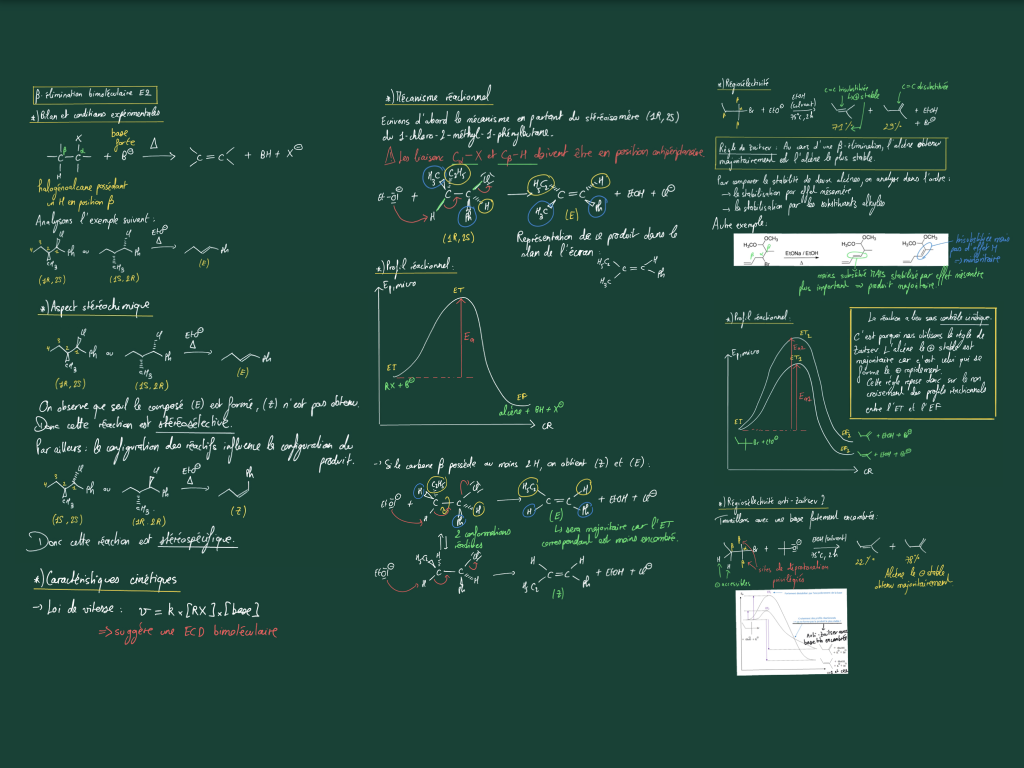 β élimination bimoléculaire E2
*) Bilan et conditions expérimentales
base
forte
X
β α
-C-C- + B⊖ Δ → C=C + BH + X⊖
H
Halogénoalcane possédant
un H en position β
Analysons l'exemple suivant :
Cl Ph ou Cl Ph EtO⊖ Δ → Ph
CH3 CH3
(1R,2S) (1S,2R) (E)
*) Aspect stéréochimique
Cl Ph ou Cl Ph EtO⊖ Δ → Ph
CH3 CH3
(1R,2S) (1S,2R) (E)
On observe que seul le composé (E) est formé, (Z) n'est pas obtenu.
Donc cette réaction est stéréosélective.
Par ailleurs : la configuration des réactifs influence la configuration du
produit.
Cl Ph ou Cl Ph EtO⊖ Δ → Ph
CH3 CH3
(1S,2S) (1R,2R) (Z)
Donc cette réaction est stéréospécifique.
*) Caractéristiques cinétiques
→ Loi de vitesse : v = k × [RX] × [base]
=> suggère une ECD bimoléculaire
*) Mécanisme réactionnel
Ecrivons d'abord le mécanisme en partant du stéréoisomère (1R,2S)
du 1-chloro-2-méthyl-1-phénylbutane.
⚠ Les liaisons Cα-X et Cβ-H doivent être en position antipériplanaire.
H3C C2H5 Cl
Et-O⊖ + C-C → H5C2 C=C H + EtOH + Cl⊖
H Ph H H3C Ph
(1R,2S) (E)
Représentation de ce produit dans le
plan de l'écran :
H5C2 H
C=C
H3C Ph
*) Profil réactionnel
Ep,micro
ET
Ea
EI
RX + B⊖
EF
alcène + BH + X⊖
CR
→ Si le carbone β possède au moins 2H, on obtient (Z) et (E) :
H C2H5 Cl
EtO⊖ + C-C → H5C2 C=C H + EtOH + Cl⊖
H Ph H H Ph
(E)
2 conformations
↳ sera majoritaire car l'ET
correspondant est moins encombré.
H5C2 H Cl
EtO⊖ C-C → H C=C H + EtOH + Cl⊖
H Ph H H5C2 Ph
(Z)
*) Régiosélectivité
C=C trisubstituée
⊕ stable
C=C disubstituée
Br + EtO⊖ EtOH (solvant) 75°C, 2h → + + EtOH
+ Br⊖
71% 29%
Règle de Zaitsev : Au cours d'une β-élimination, l'alcène obtenu
majoritairement est l'alcène le plus stable.
Pour comparer la stabilité de deux alcènes, on analyse dans l'ordre :
→ la stabilisation par effet mésomère
→ la stabilisation par les substituants alkyles
Autre exemple :
OCH3 OCH3 OCH3
H3CO H3CO H3CO
EtONa / EtOH
Δ
Br
trisubstituée mais
pas d'effet M
→ minoritaire
moins substitué MAIS stabilisé par effet mésomère
plus important → produit majoritaire !
*) Profil réactionnel
Ep,micro
ET2
Ea2
ET1
Ea1
EI
Br + EtO⊖
EF2
+ EtOH + Br⊖
EF1
+ EtOH + Br⊖
CR
La réaction a lieu sous contrôle cinétique.
C'est pourquoi nous utilisons la règle de
Zaitsev. L'alcène le ⊕ stable est
majoritaire car c'est celui qui se
forme le ⊕ rapidement.
Cette règle repose donc sur le non
croisement des profils réactionnels
entre l'ET et l'EF
*) Régiosélectivité anti-Zaitsev ?
Travaillons avec une base fortement encombrée :
Br + O⊖ tBuOH (solvant) 75°C, 2h → +
H H
22% 78%
sites de déprotonation
privilégiés
⊕ accessibles
Alcène le ⊖ stable
obtenu majoritairement
Anti-Zaitsev avec
base très encombrée